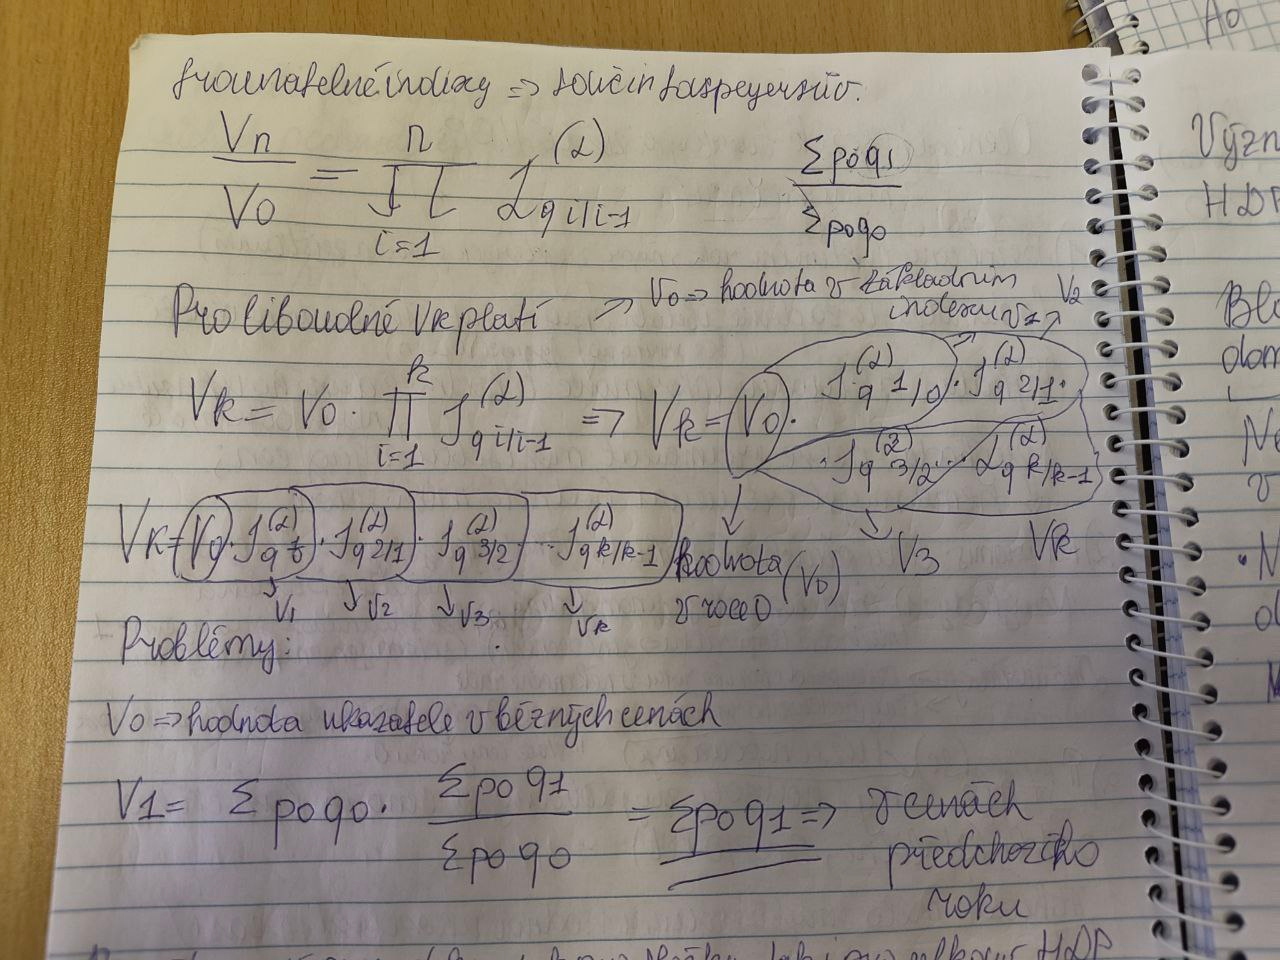 srovnatelné indexy => součin Laspeyersův.
Vn / V0 = n ∏ i=1 I q i/i-1 (L)
Σp0q1 / Σp0q0
Pro libovolné Vk platí → V0 => hodnota v základním
indexu V1 V2
Vk = V0 · k ∏ i=1 I q i/i-1 (L) => Vk = V0 · I q 1/0 (L) · I q 2/1 (L) ·
· I q 3/2 (L) ... I q k/k-1 (L)
Vk = V0 · I q 1/0 (L) · I q 2/1 (L) · I q 3/2 (L) ... I q k/k-1 (L)
V1 V2 V3 Vk
hodnota
v roce 0 (V0)
V3 Vk
Problémy:
V0 => hodnota ukazatele v běžných cenách
V1 = Σp0q0 · Σp0q1 / Σp0q0 = Σp0q1 => v cenách
předchozího
roku
HDP
A0
Význ
HDP
dom
v